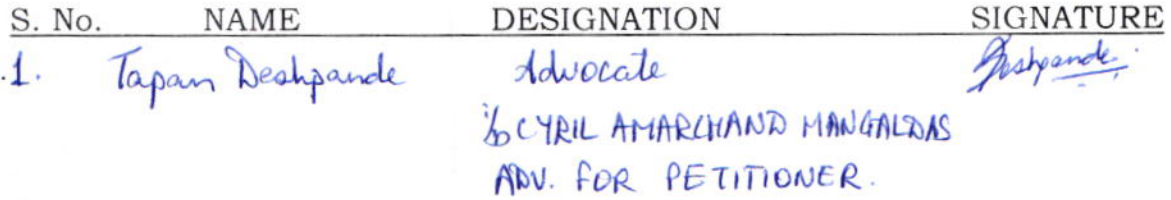 S. No. NAME DESIGNATION SIGNATURE
1. Tapan Deshpande Advocate Deshpande
i/b CYRIL AMARCHAND MANGALDAS
ADV. FOR PETITIONER.